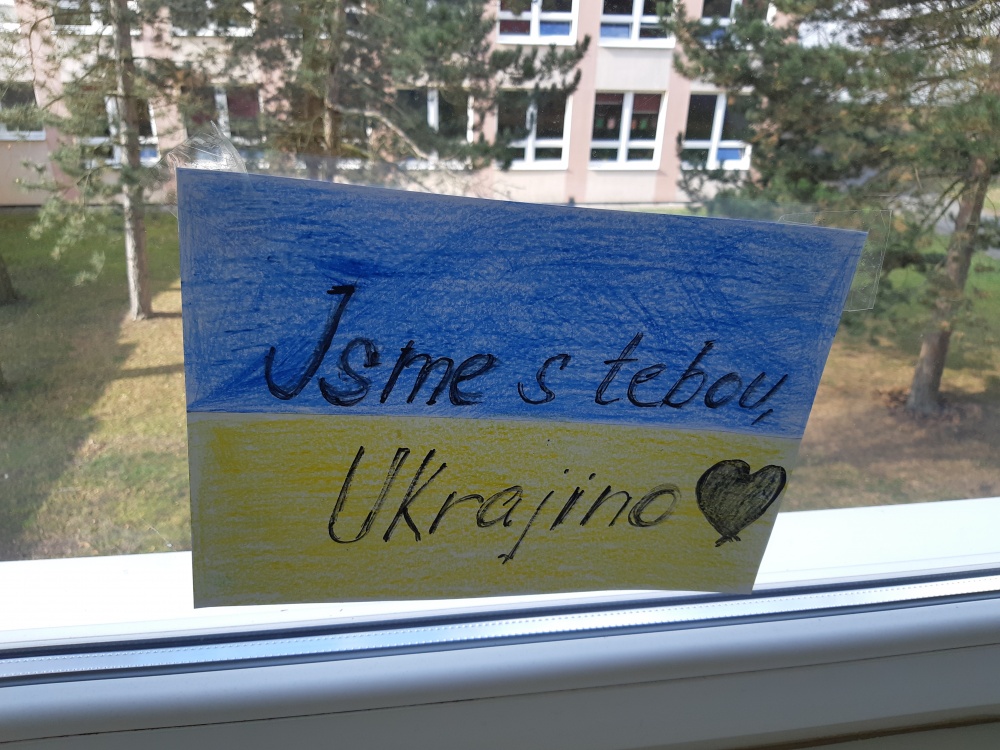 Jsme s tebou,
Ukrajino